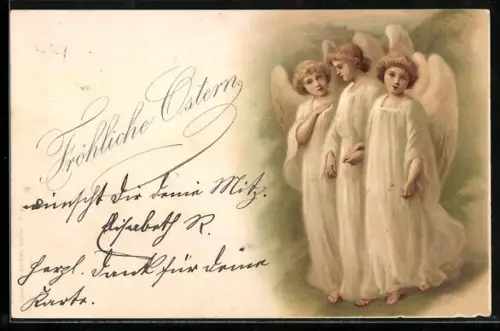 Fröhliche Ostern
wünscht Dir deine Mitz.
Elisabeth R.
Herzl. Dank für deine
Karte.